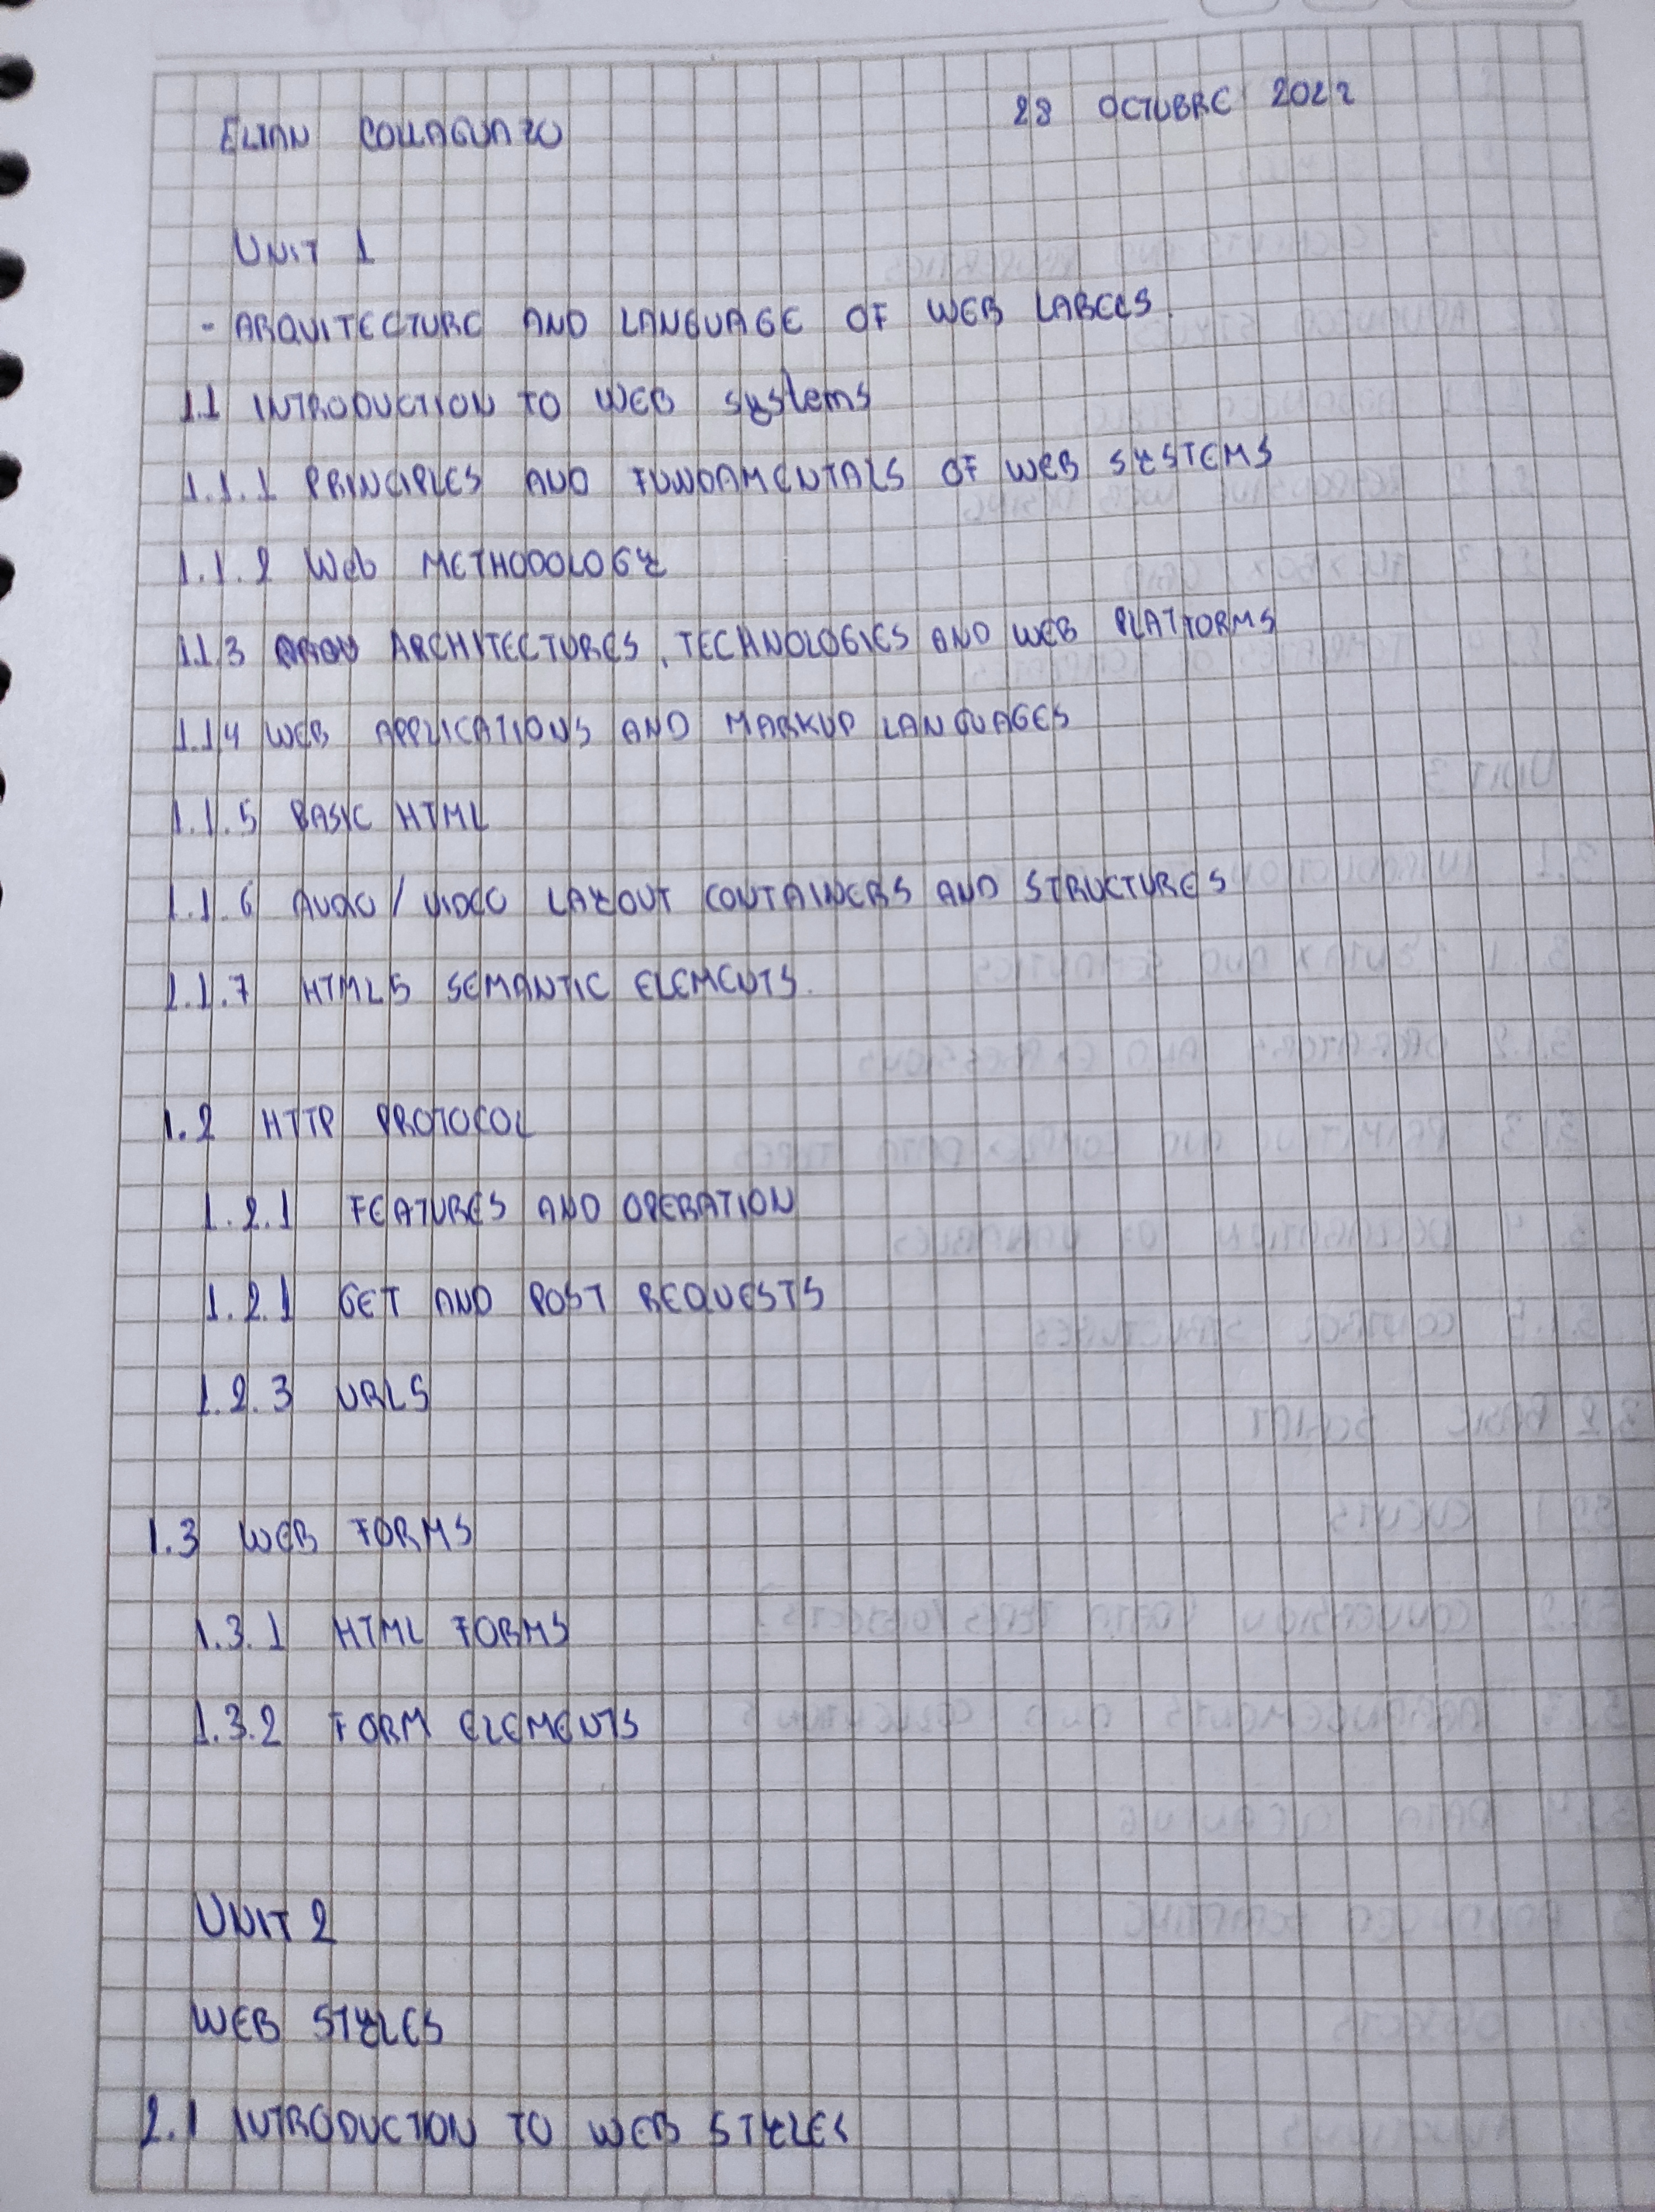 ELIAN COLLAGUAZO 28 OCTUBRE 2022
UNIT 1
- ARQUITECTURE AND LANGUAGE OF WEB LABELS.
1.1 INTRODUCTION TO WEB systems
1.1.1 PRINCIPLES AND FUNDAMENTALS OF WEB SYSTEMS
1.1.2 Web METHODOLOGY
1.1.3 ARCHITECTURES, TECHNOLOGIES AND WEB PLATFORMS
1.1.4 WEB APPLICATIONS AND MARKUP LANGUAGES
1.1.5 BASIC HTML
1.1.6 AUDIO / VIDEO LAYOUT CONTAINERS AND STRUCTURES
1.1.7 HTML5 SEMANTIC ELEMENTS.
1.2 HTTP PROTOCOL
1.2.1 FEATURES AND OPERATION
1.2.1 GET AND POST REQUESTS
1.2.3 URLS
1.3 WEB FORMS
1.3.1 HTML FORMS
1.3.2 FORM ELEMENTS
UNIT 2
WEB STYLES
2.1 INTRODUCTION TO WEB STYLES